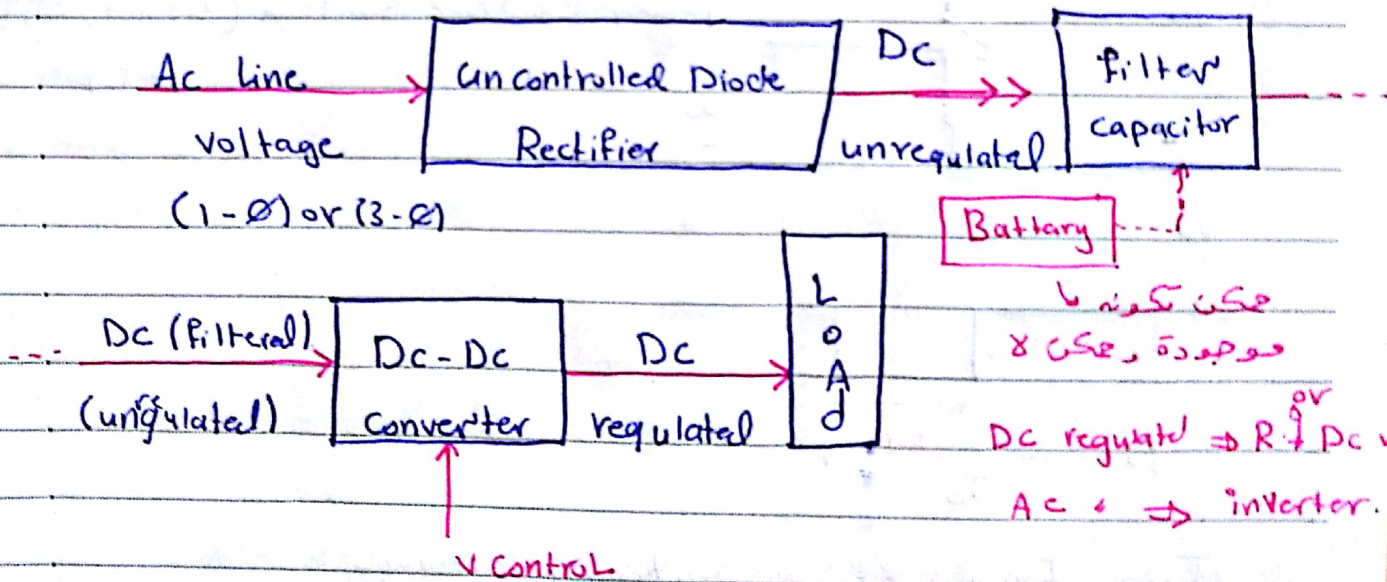 Ac Line
voltage
(1-Ø) or (3-Ø)
uncontrolled Diode
Rectifier
Dc
unregulated
filter
capacitor
Battary
يمكن تكونه
موجودة, يمكن لا
Dc (filteral)
(ungulated)
Dc-Dc
converter
Dc
regulated
LoAd
V Control
or
Dc regulatd ⇒ R Dc
Ac ⇒ inverter.